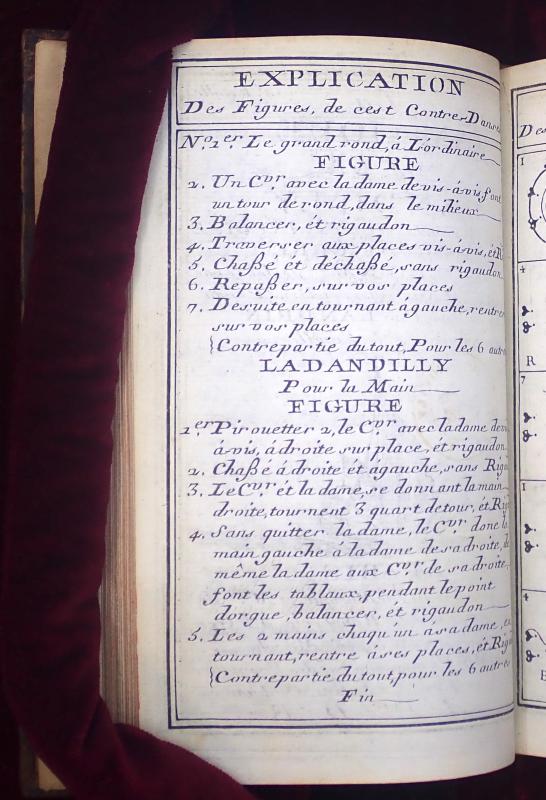 EXPLICATION
Des Figures, de cest Contre-Danse
No. 1er. Le grand rond, á Lordinaire
FIGURE
2. Un Cvr. avec la dame de vis-á-vis, font
un tour de rond, dans le milieux
3. Balancer, ét rigaudon
4. Traverser aux places vis-á-vis, ét R
5. Chaßé ét déchaßé, sans rigaudon
6. Repaßer, sur vos places
7. Desuite en tournant á gauche, rentrer
sur vos places
{Contrepartie du tout, Pour les 6 autre
LA DANDILLY
Pour la Main
FIGURE
1er. Pirouetter 2, le Cvr. avec la dame de vis
á-vis, á droite sur place, ét rigaudon
2. Chaßé á droite ét ágauche, sans Rig
3. Le Cvr. ét la dame, se donnant la main
droite, tournent 3 quart de tour, ét Rig
4. Sans quitter la dame, le Cvr. done la
main gauche á la dame de sa droite, de
même la dame aux Cvr. de sa droite,
font les tablaux, pendant le point
dorgue, balancer, ét rigaudon
5. Les 2 mains chaqu'un á sa dame, en
tournant, rentre á ses places, ét Rig
{Contrepartie du tout, pour les 6 autres
Fin
Des
1
4
R
7
1
4